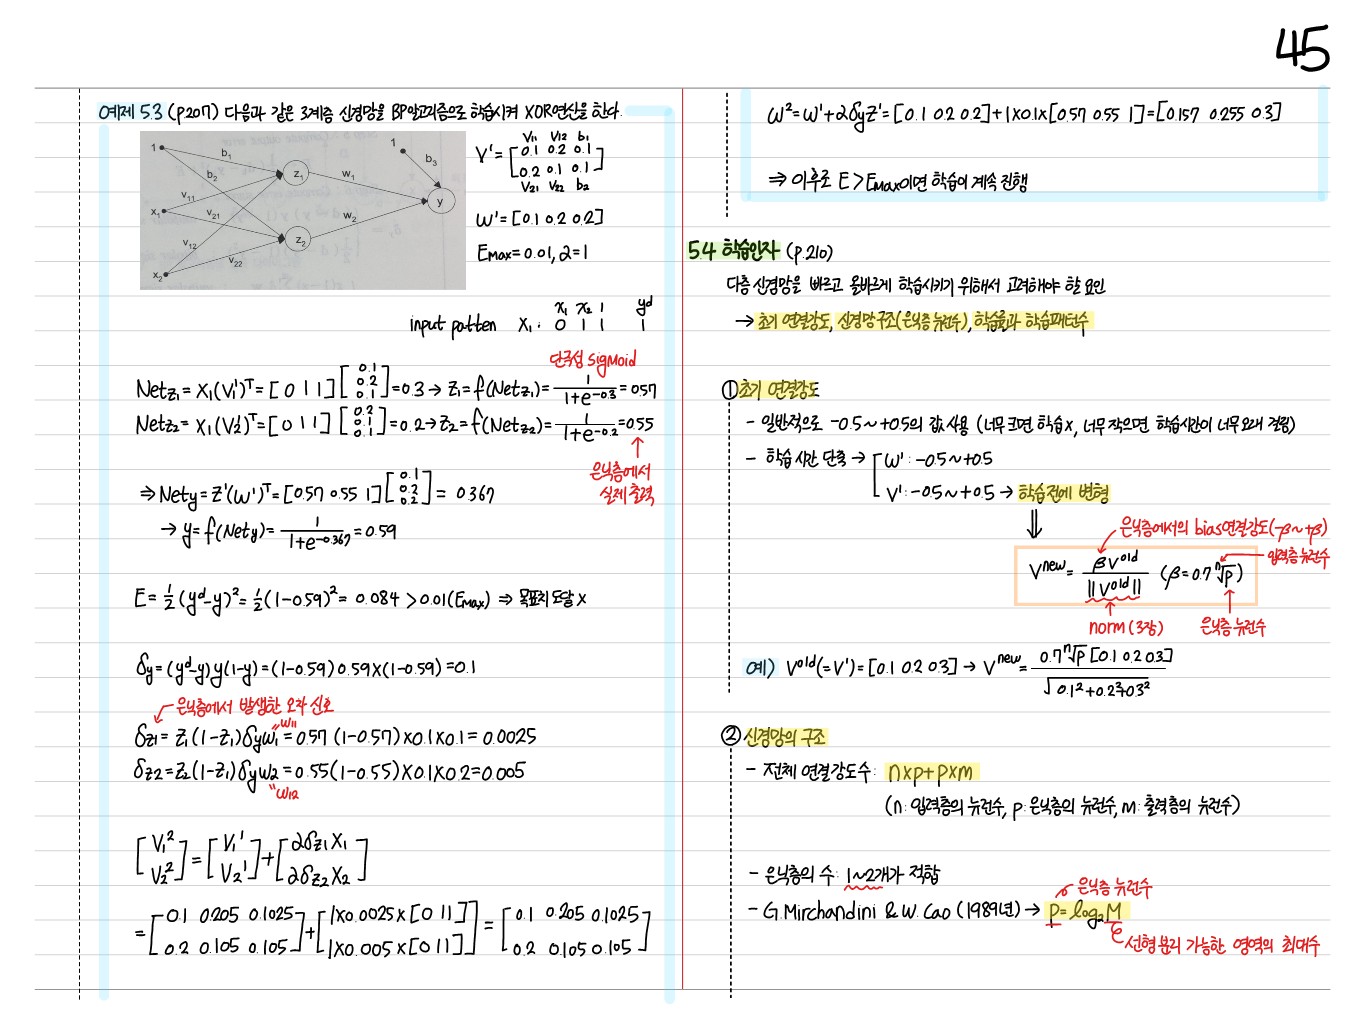 45
예제 5.3 (p.207) 다음과 같은 3계층 신경망을 BP알고리즘으로 학습시켜 XOR연산을 한다.
1 b₁ b₂ v₁₁ v₂₁ v₁₂ v₂₂ x₁ x₂ z₁ z₂ w₁ w₂ 1 b₃ y
V₁₁ V₁₂ b₁
V' = [0.1 0.2 0.1
0.2 0.1 0.1]
V₂₁ V₂₂ b₂
W' = [0.1 0.2 0.2]
Emax = 0.01, α = 1
x₁ x₂ 1 yd
input patten X₁ : 0 1 1 1
단극성 sigmoid
Netz₁ = X₁(V₁')ᵀ = [0 1 1] [0.1 0.2 0.1] = 0.3 → Z₁ = f(Netz₁) = 1/(1+e^-0.3) = 0.57
Netz₂ = X₁(V₂')ᵀ = [0 1 1] [0.2 0.1 0.1] = 0.2 → Z₂ = f(Netz₂) = 1/(1+e^-0.2) = 0.55
은닉층에서
실제 출력
⇒ Nety = Z'(W')ᵀ = [0.57 0.55 1] [0.1 0.2 0.2] = 0.367
→ y = f(Nety) = 1/(1+e^-0.367) = 0.59
E = ½(yᵈ-y)² = ½(1-0.59)² = 0.084 > 0.01(Emax) ⇒ 목표치 도달 X
δy = (yᵈ-y)y(1-y) = (1-0.59)0.59×(1-0.59) = 0.1
은닉층에서 발생한 오차 신호
"W₁₁
δz₁ = Z₁(1-Z₁)δyw₁ = 0.57(1-0.57)×0.1×0.1 = 0.0025
δz₂ = Z₂(1-Z₂)δyw₂ = 0.55(1-0.55)×0.1×0.2 = 0.005
"W₁₂
[V₁² V₂²] = [V₁' V₂'] + [αδz₁X₁ αδz₂X₂]
= [0.1 0.205 0.1025
0.2 0.105 0.105] + [1×0.0025×[0 1 1]
1×0.005×[0 1 1]] = [0.1 0.205 0.1025
0.2 0.105 0.105]
W² = W' + αδyZ' = [0.1 0.2 0.2] + 1×0.1×[0.57 0.55 1] = [0.157 0.255 0.3]
⇒ 이후로 E > Emax이면 학습이 계속 진행
5.4 학습인자 (p.210)
다층 신경망을 빠르고 올바르게 학습시키기 위해서 고려해야 할 요인
→ 초기 연결강도, 신경망구조(은닉층 뉴런수), 학습률과 학습패턴수
① 초기 연결강도
- 일반적으로 -0.5~+0.5의 값 사용 (너무 크면 학습x, 너무 작으면 학습시간이 너무 오래 걸림)
- 학습 시간 단축 → W' : -0.5~+0.5
V' : -0.5~+0.5 → 학습전에 변형
⇓
은닉층에서의 bias연결강도(-β~+β)
Vnew = βVold/||Vold|| (β = 0.7 ⁿ√p) 입력층 뉴런수
norm (3장) 은닉층 뉴런수
예) Vold(=V') = [0.1 0.2 0.3] → Vnew = 0.7 ⁿ√p [0.1 0.2 0.3] / √0.1²+0.2²+0.3²
② 신경망의 구조
- 전체 연결강도수 : n×p+p×m
(n : 입력층의 뉴런수, p : 은닉층의 뉴런수, m : 출력층의 뉴런수)
- 은닉층의 수 : 1~2개가 적합
은닉층 뉴런수
- G.Mirchandini & W.Cao (1989년) → P = log₂M
선형 분리 가능한 영역의 최대수